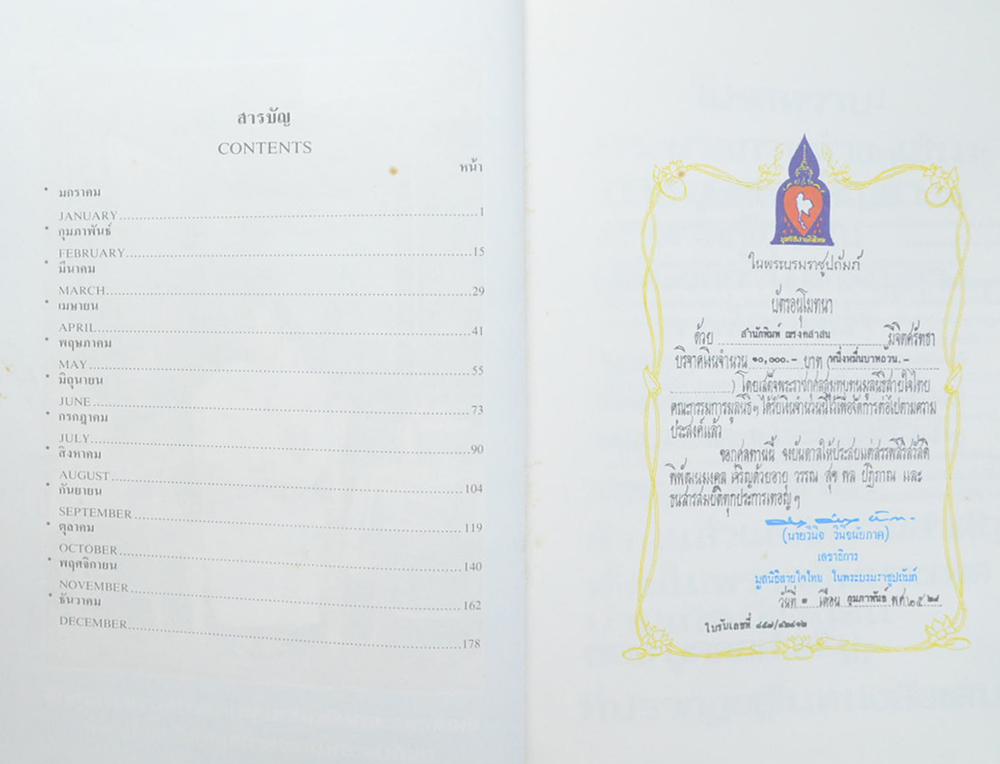 สารบัญ
CONTENTS
หน้า
* มกราคม
JANUARY...1
* กุมภาพันธ์
FEBRUARY...15
* มีนาคม
MARCH...29
* เมษายน
APRIL...41
* พฤษภาคม
MAY...55
* มิถุนายน
JUNE...73
* กรกฎาคม
JULY...90
* สิงหาคม
AUGUST...104
* กันยายน
SEPTEMBER...119
* ตุลาคม
OCTOBER...140
* พฤศจิกายน
NOVEMBER...162
* ธันวาคม
DECEMBER...178
มูลนิธิสายใจไทย
ในพระบรมราชูปถัมภ์
บัตรอนุโมทนา
ด้วย สำนักพิมพ์ มีจิตศรัทธา
บริจาคเงินจำนวน ๑๐,๐๐๐.- บาท (หนึ่งหมื่นบาทถวน.-
) โดยเสด็จพระราชกุศลสมทบทุนมูลนิธิสายใจไทย
คณะกรรมการมูลนิธิฯ ได้รับเงินจำนวนนี้ไว้เพื่อจัดการต่อไปตามความ
ประสงค์แล้ว
ขอกุศลทานนี้ จงบันดาลให้ประสบแต่สรรพสิริสวัสดิ์
พิพัฒนมงคล เจริญด้วยอายุ วรรณ สุข พล ปฏิภาณ และ
ธนสารสมบัติทุกประการเทอญ ฯ
(นายวินิจ วินิจนัยภาค)
เลขาธิการ
มูลนิธิสายใจไทย ในพระบรมราชูปถัมภ์
วันที่ ๑ เดือน กุมภาพันธ์ พ.ศ. ๒๕๒๘
ใบรับเลขที่